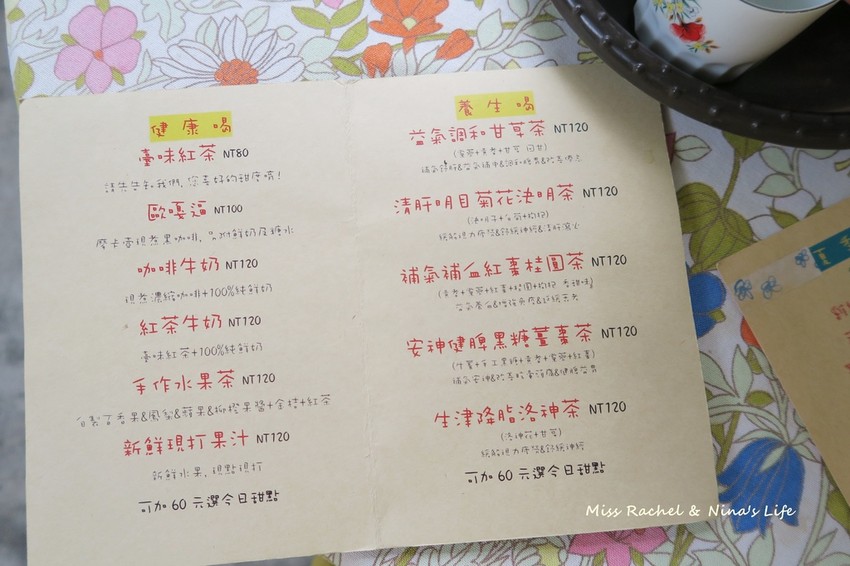 健康喝
臺味紅茶 NT80
請先告知我們, 您喜好的甜度唷!
歐嘎逼 NT100
摩卡壺現煮黑咖啡, 另附鮮奶及糖水
咖啡牛奶 NT120
現煮濃縮咖啡+100%純鮮奶
紅茶牛奶 NT120
臺味紅茶+100%純鮮奶
手作水果茶 NT120
自製百香果&鳳梨&蘋果&柳橙果醬+金桔+紅茶
新鮮現打果汁 NT120
新鮮水果, 現點現打
可加 60 元選今日甜點
養生喝
益氣調和甘草茶 NT120
清肝明目菊花決明茶 NT120
(決明子+白菊+枸杞)
補氣補血紅棗桂圓茶 NT120
安神健脾黑糖薑棗茶 NT120
生津降脂洛神茶 NT120
(洛神花+甘草)
可加 60 元選今日甜點
Miss Rachel & Nina's Life